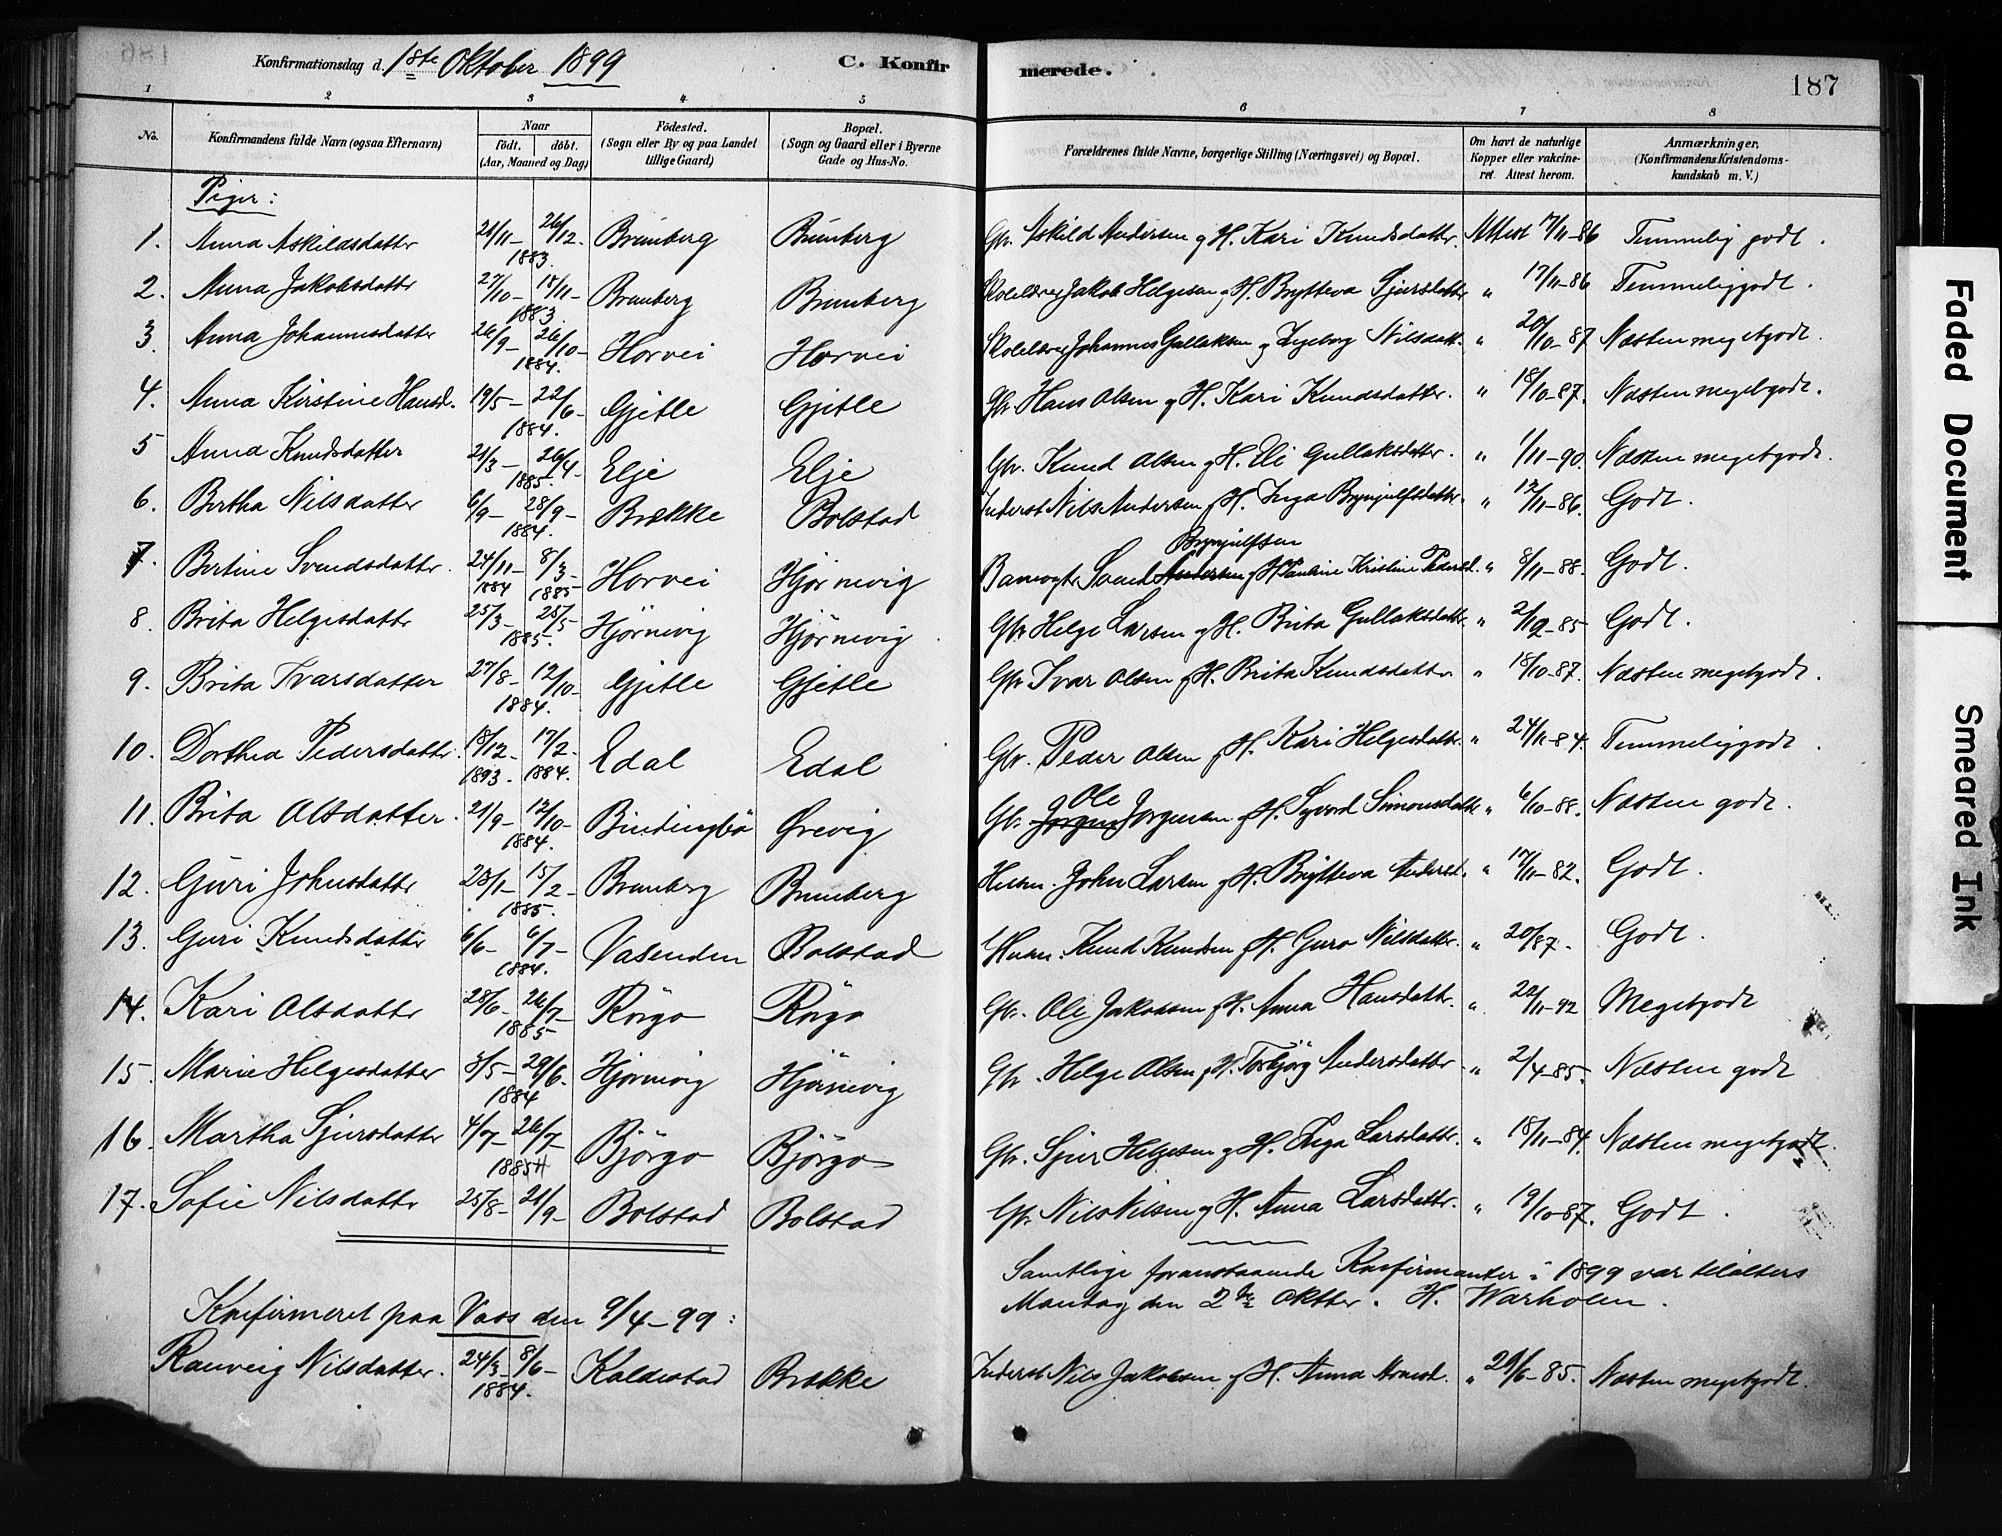 Konfirmationsdag d. 1ste Oktober 1899 C. Konfirmerede. 187
1 2 3 4 5 6 7 8
No. Konfirmandens fulde Navn (ogsaa Efternavn) Naar födt. döbt. (Aar, Maaned og Dag) Födested. (Sogn eller By og paa Landet tillige Gaard) Bopæl. (Sogn og Gaard eller i Byerne Gade og Hus-No. Forældrenes fulde Navne, borgerlige Stilling (Næringsvei) og Bopæl. Om havt de naturlige Kopper eller vakcineret. Attest herom. Anmærkninger. (Konfirmandens Kristendomskundskab m. V.)
Piger:
1. Anna Askildsdatter 21/11– 26/12. 1883. Brunberg Brunberg Gbr. Askild Andersen og H. Kari Knudsdatter. Attest 17/11-86 Temmelig godt.
2. Anna Jakobsdatter 27/10– 15/11– 1883. Brunberg Brunberg Skolelærer Jakob Helgesen og H. Brytteva Sjursdatter " 17/11-86 Temmeliggodt.
3. Anna Johannesdatter 26/9– 26/10– 1884. Horvei Horvei Skolelærer Johannes Gullaksen og Ingeborg Nilsdatt. " 20/10-87 Næsten megetgodt.
4. Anna Kirstine Hansd. 19/5– 22/6– 1884. Gjetle Gjetle Gbr. Hans Olsen og H. Kari Knudsdatter. " 18/10-87. Næsten megetgodt.
5 Anna Knudsdatter 21/3– 26/4– 1885. Elje Elje Gbr. Knud Olsen og H. Eli Gullaksdatter. " 1/11-90. Næsten megetgodt.
6. Bertha Nilsdatter 6/9– 28/9– 1884. Brække Bolstad Inderst Nils Andersen og H. Inga Brynjulfsdatter. " 12/11-86. Godt.
7. Bertine Svendsdatter. 24/11– 1884 8/3– 1885 Horvei Hjørnevig Banevogter Svend Andersen Brynjulfsen og H. Pauline Kristine Pedersd. " 8/11-88. Godt.
8. Brita Helgesdatter 25/3– 25/5 1885. Hjørnevig Hjørnevig. Gbr. Helge Larsen og H. Brita Gullaksdatter. " 2/12-85 Godt.
9. Brita Ivarsdatter 27/8– 12/10– 1884. Gjetle Gjetle Gbr. Ivar Olsen og H. Brita Knudsdatter " 18/10-87. Næsten megetgodt.
10. Dorthea Pedersdatter. 18/12– 1893. 17/2– 1884. Edal Edal Gbr. Peder Olsen og H. Kari Helgesdatter. " 24/11-84. Temmeliggodt.
11. Brita Olsdatter. 21/9– 12/10– 1884. Bindingbø Ørevig Gbr. Jørgen Ole Jørgensen og H. Syvord Simonsdatter " 6/10-88. Næsten godt.
12. Guri Johnsdatter 23/1– 15/2– 1885. Brunberg Brunberg Husm. John Larsen og H. Brytteva Andersd. " 17/11-82. Godt.
13. Guri Knudsdatter 6/6– 6/7– 1884. Vasenden Bolstad Husm. Knud Knudsen og H. Guro Nilsdatter. " 20/87. Godt.
14. Kari Olsdatter 28/6– 26/7– 1885 Rörgo Rörgo Gbr. Ole Jakobsen og H. Anna Hansdatter. " 22/11-92 Megetgodt
15. Marie Helgesdatter 3/5– 29/6. 1884 Hjørnevig Hjørnevig Gbr. Helge Olsen og H. Torbjörg Andersdatter " 2/4-85. Næsten godt
16. Martha Sjursdatter 4/7– 26/7– 1885 Björgo Björgo Gbr. Sjur Helgesen og H. Inga Larsdatter. " 18/11-84. Næsten megetgodt.
17. Sofie Nilsdatter 25/8– 21/9– Bolstad Bolstad Gbr. Nils Nilsen og H. Anna Larsdatter. " 19/10-87. Godt.
Samtlige foranstaaende Konfirmanter i 1899 var tilalters
Mandag den 2den Oktber. H. Warholm.
Konfirmeret paa Voss den 9/4–99:
Ranveig Nilsdatter. 24/3– 8/6– 1884. Kaldestad Brække Inderst Nils Jakobsen og H. Anna Arnesd. " 29/6-85. Næsten megetgodt.
Faded Document
Smeared Ink